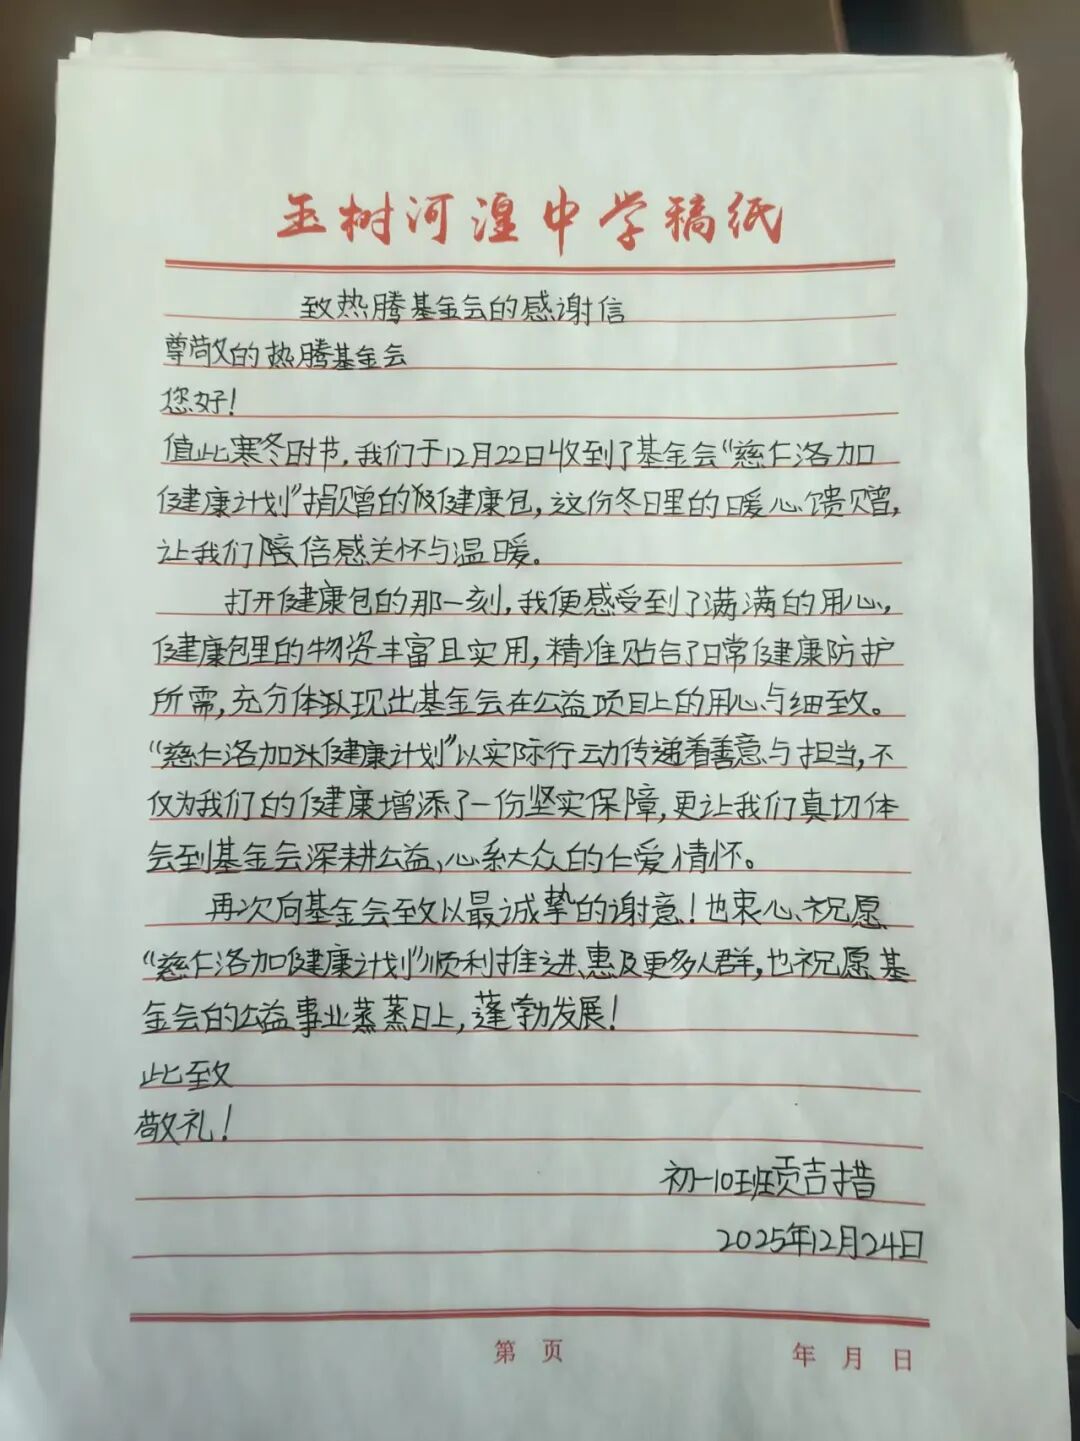 玉树河湟中学稿纸
致热腾基金会的感谢信
尊敬的热腾基金会
您好!
值此寒冬时节,我们于12月22日收到了基金会“慈仁洛加
健康计划”捐赠的健康包,这份冬日里的暖心馈赠,
让我们陪倍感关怀与温暖。
打开健康包的那一刻,我便感受到了满满的用心,
健康包里的物资丰富且实用,精准贴合了日常健康防护
所需,充分体现出基金会在公益项目上的用心与细致。
“慈仁洛加健康计划”以实际行动传递着善意与担当,不
仅为我们的健康增添了一份坚实保障,更让我们真切体
会到基金会深耕公益、心系大众的仁爱情怀。
再次向基金会致以最诚挚的谢意!也衷心祝愿
“慈仁洛加健康计划”顺利推进、惠及更多人群,也祝愿基
金会的公益事业蒸蒸日上,蓬勃发展!
此致
敬礼!
初一10班贡吉措
2025年12月24日
第 页 年 月 日